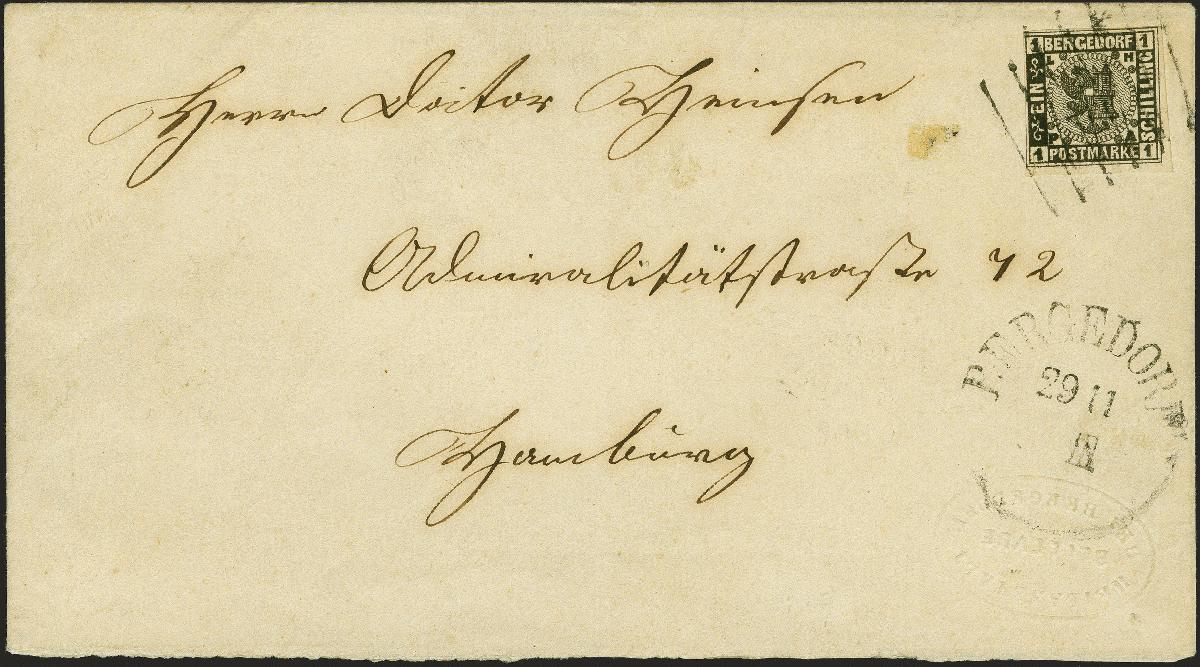 1 BERGEDORF 1
EIN SCHILLING
L H
P A
1 POSTMARKE 1
Herrn Doctor Heinsen
Admiralitätstraße 72
Hamburg
BERGEDORF
29 11
III